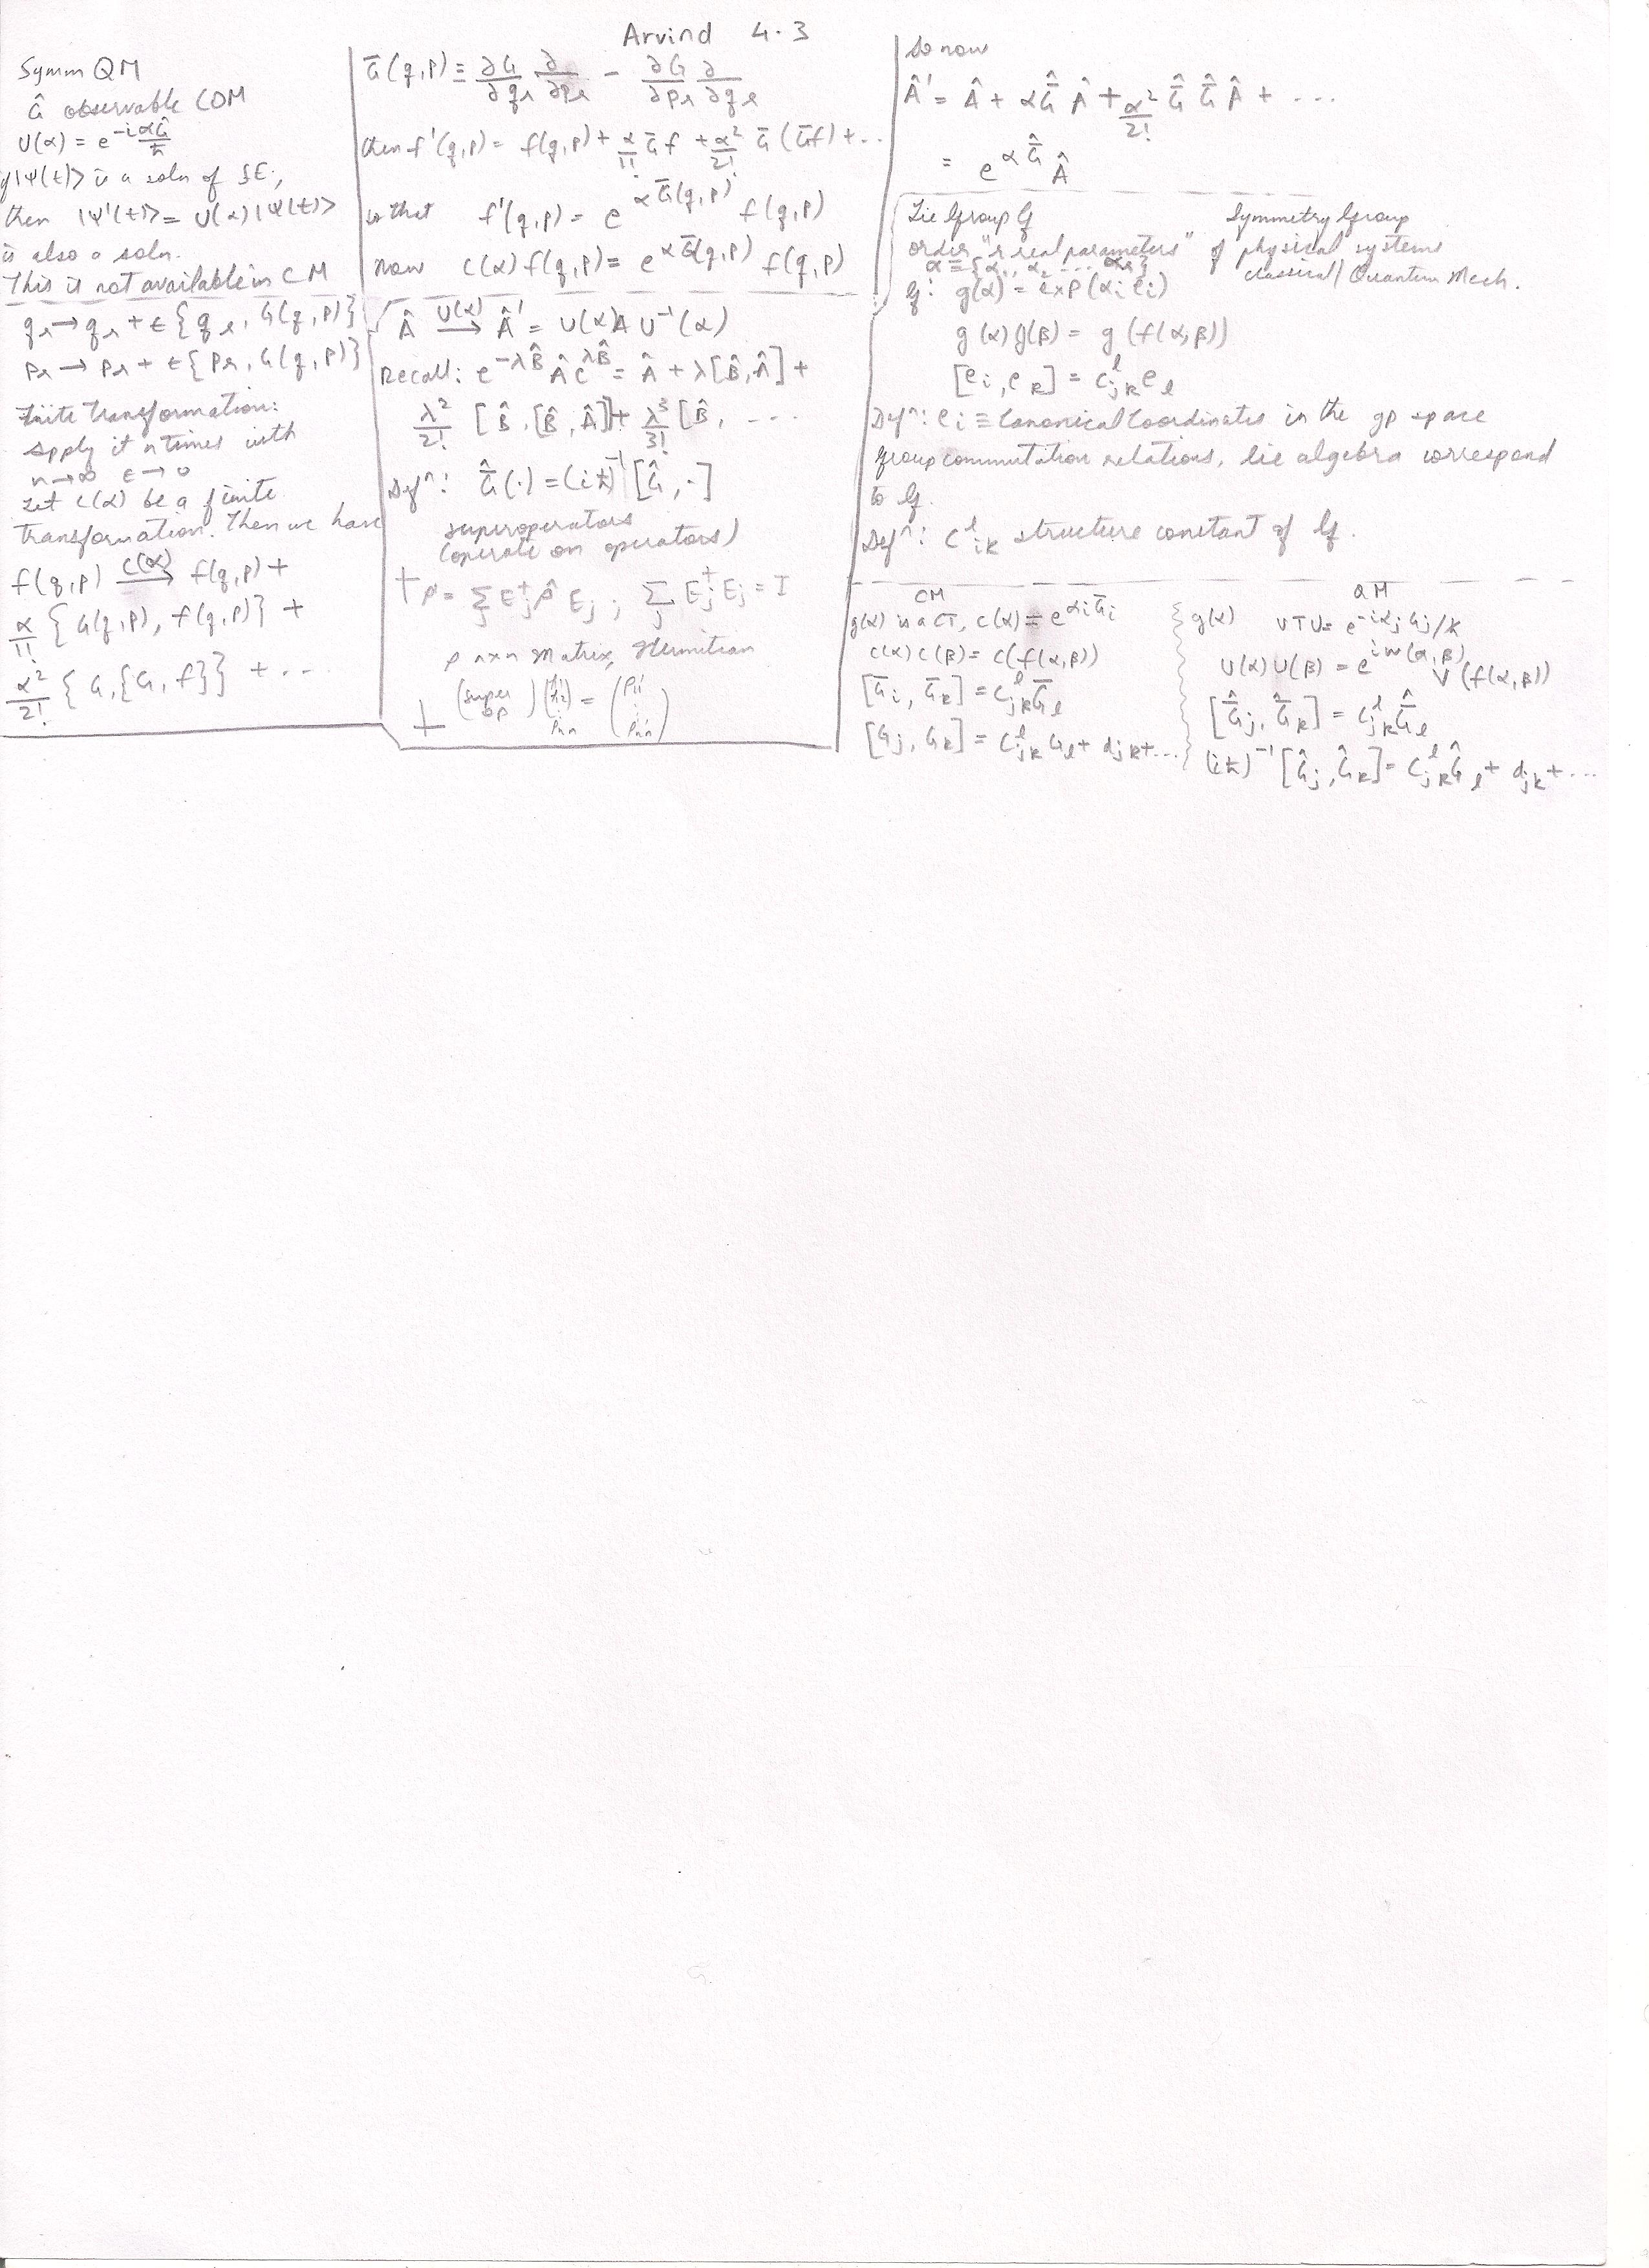 Arvind 4.3
Symm QM
Ĝ observable COM
U(α) = e^{-iαĜ/ħ}
if |Ψ(t)> is a soln of SE,
then |Ψ'(t)> = U(α)|Ψ(t)>
is also a soln.
This is not available in CM
q_r → q_r + ε{q_r, G(q,p)}
p_r → p_r + ε{p_r, G(q,p)}
finite transformation:
apply it n times with
n→∞ ε→0
Let C(α) be a finite
transformation. Then we have
f(q,p) –C(α)→ f(q,p) +
α/1! {G(q,p), f(q,p)} +
α²/2! {G,{G,f}} + ...
G̅(q,p) ≡ ∂G/∂q_r ∂/∂p_r − ∂G/∂p_r ∂/∂q_r
then f'(q,p) = f(q,p) + α/1! G̅f + α²/2! G̅(G̅f) + ..
so that f'(q,p) = e^{αG̅(q,p)} f(q,p)
now C(α)f(q,p) = e^{αG̅(q,p)} f(q,p)
Â –U(α)→ Â' = U(α)A U⁻¹(α)
Recall: e^{-λB̂} Â e^{λB̂} = Â + λ[B̂,Â] +
λ²/2! [B̂,[B̂,Â]] + λ³/3! [B̂, ...
Defⁿ: Ĝ̅(·) = (iħ)⁻¹[Ĝ,·]
superoperators
(operate on operators)
ρ' = Σ_j E_j†ρ E_j ; Σ_j E_j†E_j = I
ρ n×n Matrix, Hermitian
(super op)(ρ₁₁ ρ₁₂ ⋮ ρ_nn) = (ρ₁₁' ⋮ ρ_nn')
So now
Â' = Â + αĜ̅ Â + α²/2! Ĝ̅ Ĝ̅ Â + ...
= e^{αĜ̅} Â
Lie Group G Symmetry Group
order "r real parameters" of physical systems
α ≡ {α₁, α₂ ... α_r} classical/Quantum Mech.
G: g(α) = exp(α_i e_i)
g(α)g(β) = g(f(α,β))
[e_i, e_k] = C_{jk}^l e_l
Defⁿ: e_i ≡ Canonical Coordinates in the gp space
Group commutation relations, lie algebra correspond
to G.
Defⁿ: C_{ik}^l structure constant of G.
CM
g(α) is a CT, C(α) = e^{α_i G̅_i}
C(α)C(β) = C(f(α,β))
[G̅_i, G̅_k] = C_{jk}^l G̅_l
[G_j, G_k] = C_{jk}^l G_l + d_{jk} + ...
QM
g(α) UTU = e^{-iα_j G_j/ħ}
U(α)U(β) = e^{iω(α,β)} U(f(α,β))
[Ĝ̅_j, Ĝ̅_k] = C_{jk}^l Ĝ̅_l
(iħ)⁻¹[Ĝ_j, Ĝ_k] = C_{jk}^l Ĝ_l + d_{jk} + ...